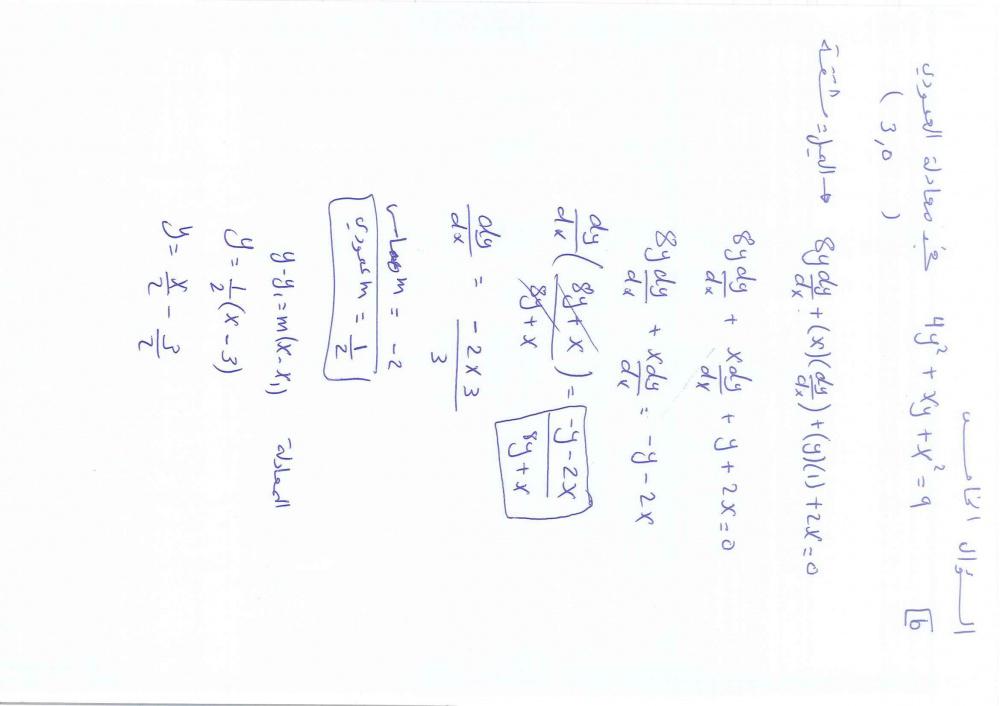 السؤال الخامس
b 4y² + xy + x² = 9 معادلة العمودي
(3,0)
الميل = المشتقة → 8y dy/dx + (x)(dy/dx) + (y)(1) + 2x = 0
8y dy/dx + x dy/dx + y + 2x = 0
8y dy/dx + x dy/dx = -y - 2x
dy/dx (8y + x / 8y + x) = -y - 2x / 8y + x
dy/dx = -2 × 3 / 3
m مماس = -2
m عمودي = 1/2
المعادلة y - y₁ = m(x - x₁)
y = 1/2 (x - 3)
y = x/2 - 3/2